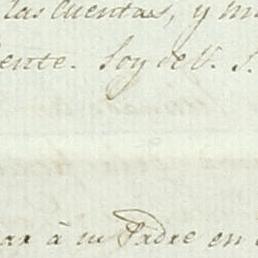 las cuentas, y m
ente. Soy de V. S.
ar à su Padre en